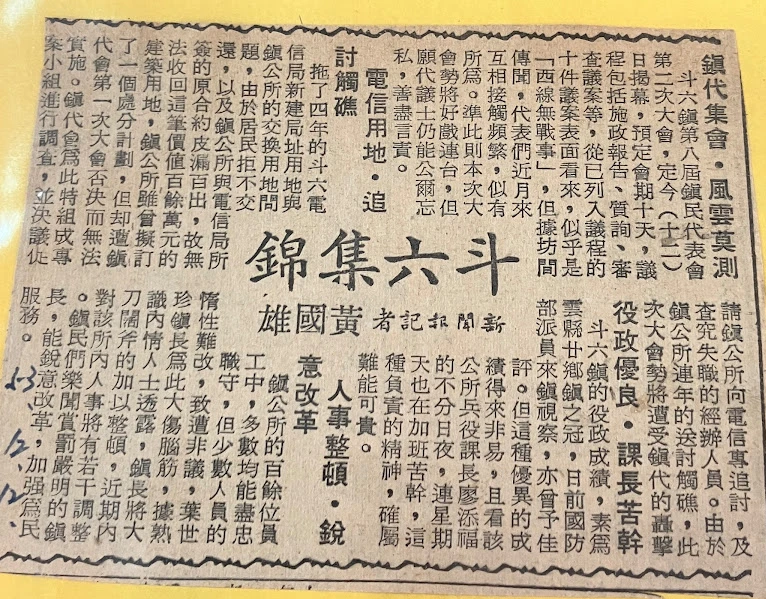 斗六集錦
新聞報記者 黃國雄
鎮代集會・風雲莫測
斗六鎮第八屆鎮民代表會
第二次大會,定今(十二)
日揭幕,預定會期十天,議
程包括施政報告、質詢、審
查議案等,從已列入議程的
十件議案表面看來,似乎是
「西線無戰事」,但據坊間
傳聞,代表們近月來
互相接觸頻繁,似有
所爲。準此則本次大
會勢將好戲連台,但
願代議士仍能公爾忘
私,善盡言責。
電信用地・追
討觸礁
拖了四年的斗六電
信局新建局址用地與
鎮公所的交換用地問
題,由於居民拒不交
還,以及鎮公所與電信局所
簽的原合約皮漏百出,故無
法收回這筆價值百餘萬元的
建築用地,鎮公所雖曾擬訂
了一個處分計劃,但却遭鎮
代會第一次大會否決而無法
實施。鎮代會爲此特組成專
案小組進行調查,並決議促
請鎮公所向電信專追討,及
查究失職的經辦人員。由於
鎮公所連年的送討觸礁,此
次大會勢將遭受鎮代的轟擊
役政優良・課長苦幹
斗六鎮的役政成績,素爲
雲縣廿鄉鎮之冠,日前國防
部派員來鎮視察,亦曾予佳
評。但這種優異的成
績得來非易,且看該
公所兵役課長廖添福
的不分日夜,連星期
天也在加班苦幹,這
種負責的精神,確屬
難能可貴。
人事整頓・銳
意改革
鎮公所的百餘位員
工中,多數均能盡忠
職守,但少數人員的
惰性難改,致遭非議,葉世
珍鎮長爲此大傷腦筋,據熟
識內情人士透露,鎮長將大
刀闊斧的加以整頓,近期內
對該所內人事將有若干調整
。鎮民們樂聞賞罰嚴明的鎮
長,能銳意改革,加强爲民
服務。
53、12、12、